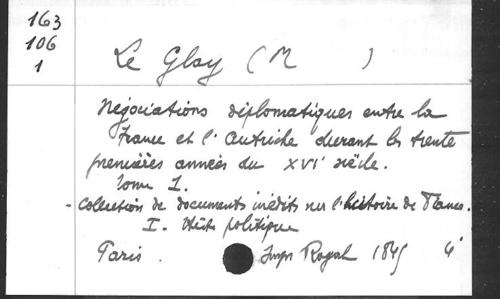 163
106
1
Le Glay (M )
Négociations diplomatiques entre la
France et l'Autriche durant les trente
premières années du XVIe siècle.
Tome I.
- Collection de documents inédits sur l'histoire de France.
I. Série politique
Paris. Impr Royale 1845 4°